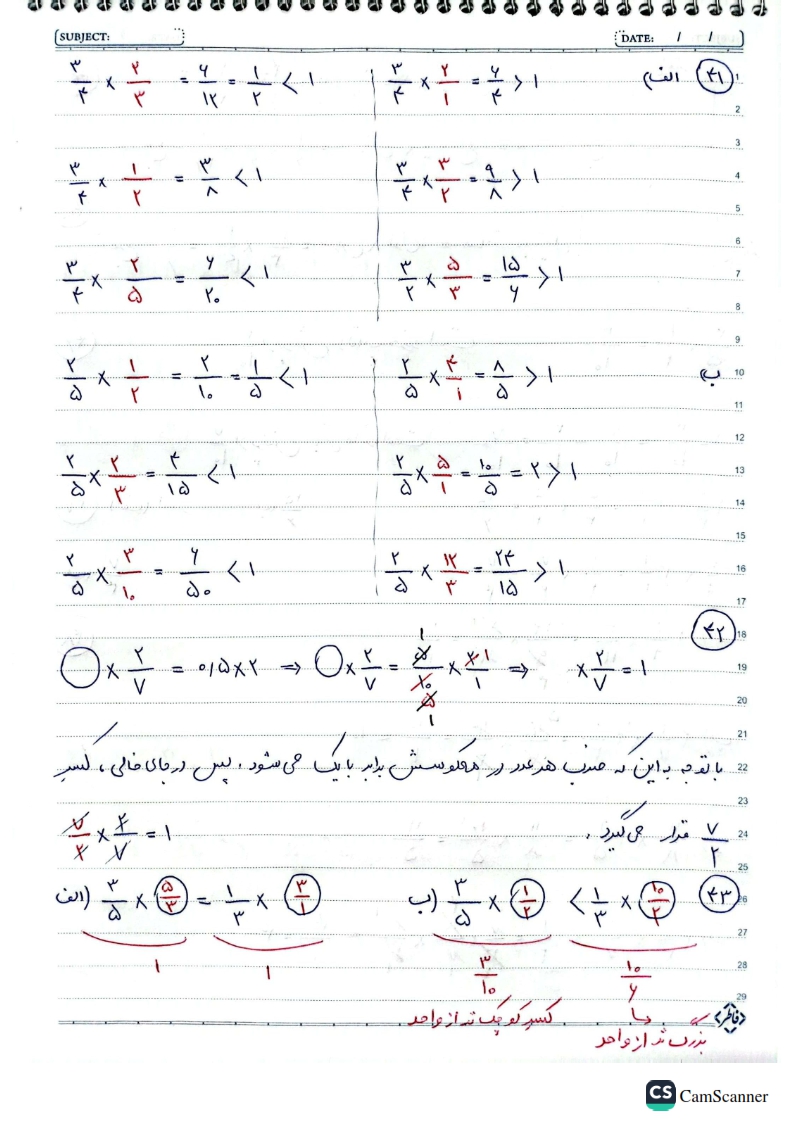 SUBJECT: DATE: / /
۴۱ الف) ۳/۴ × ۲/۱ = ۶/۴ > ۱ | ۳/۴ × ۲/۳ = ۶/۱۲ = ۱/۲ < ۱
۳/۴ × ۳/۲ = ۹/۸ > ۱ | ۳/۴ × ۱/۲ = ۳/۸ < ۱
۳/۲ × ۵/۳ = ۱۵/۶ > ۱ | ۳/۴ × ۲/۵ = ۶/۲۰ < ۱
ب) ۲/۵ × ۴/۱ = ۸/۵ > ۱ | ۲/۵ × ۱/۲ = ۲/۱۰ = ۱/۵ < ۱
۲/۵ × ۵/۱ = ۱۰/۵ = ۲ > ۱ | ۲/۵ × ۲/۳ = ۴/۱۵ < ۱
۲/۵ × ۱۲/۳ = ۲۴/۱۵ > ۱ | ۲/۵ × ۳/۱۰ = ۶/۵۰ < ۱
۴۲
○ × ۲/۷ = ۰/۵ × ۲ ⇒ ○ × ۲/۷ = ۵/۱۰ × ۲/۱ ⇒ × ۲/۷ = ۱
با توجه به این که ضرب هر عدد در معکوسش برابر با یک می‌شود، پس در جای خالی، کسر
۷/۲ قرار می‌گیرد. ۷/۲ × ۲/۷ = ۱
۴۳ الف) ۳/۵ × ۵/۳ = ۱/۳ × ۳/۱ ب) ۳/۵ × ۱/۲ < ۱/۳ × ۱۰/۲
۱ ۱ ۳/۱۰ ۱۰/۶
کسر کوچک تر از واحد
بزرگ تر از واحد
فاطر
1
2
3
4
5
6
7
8
9
10
11
12
13
14
15
16
17
18
19
20
21
22
23
24
25
26
27
28
29
CS CamScanner